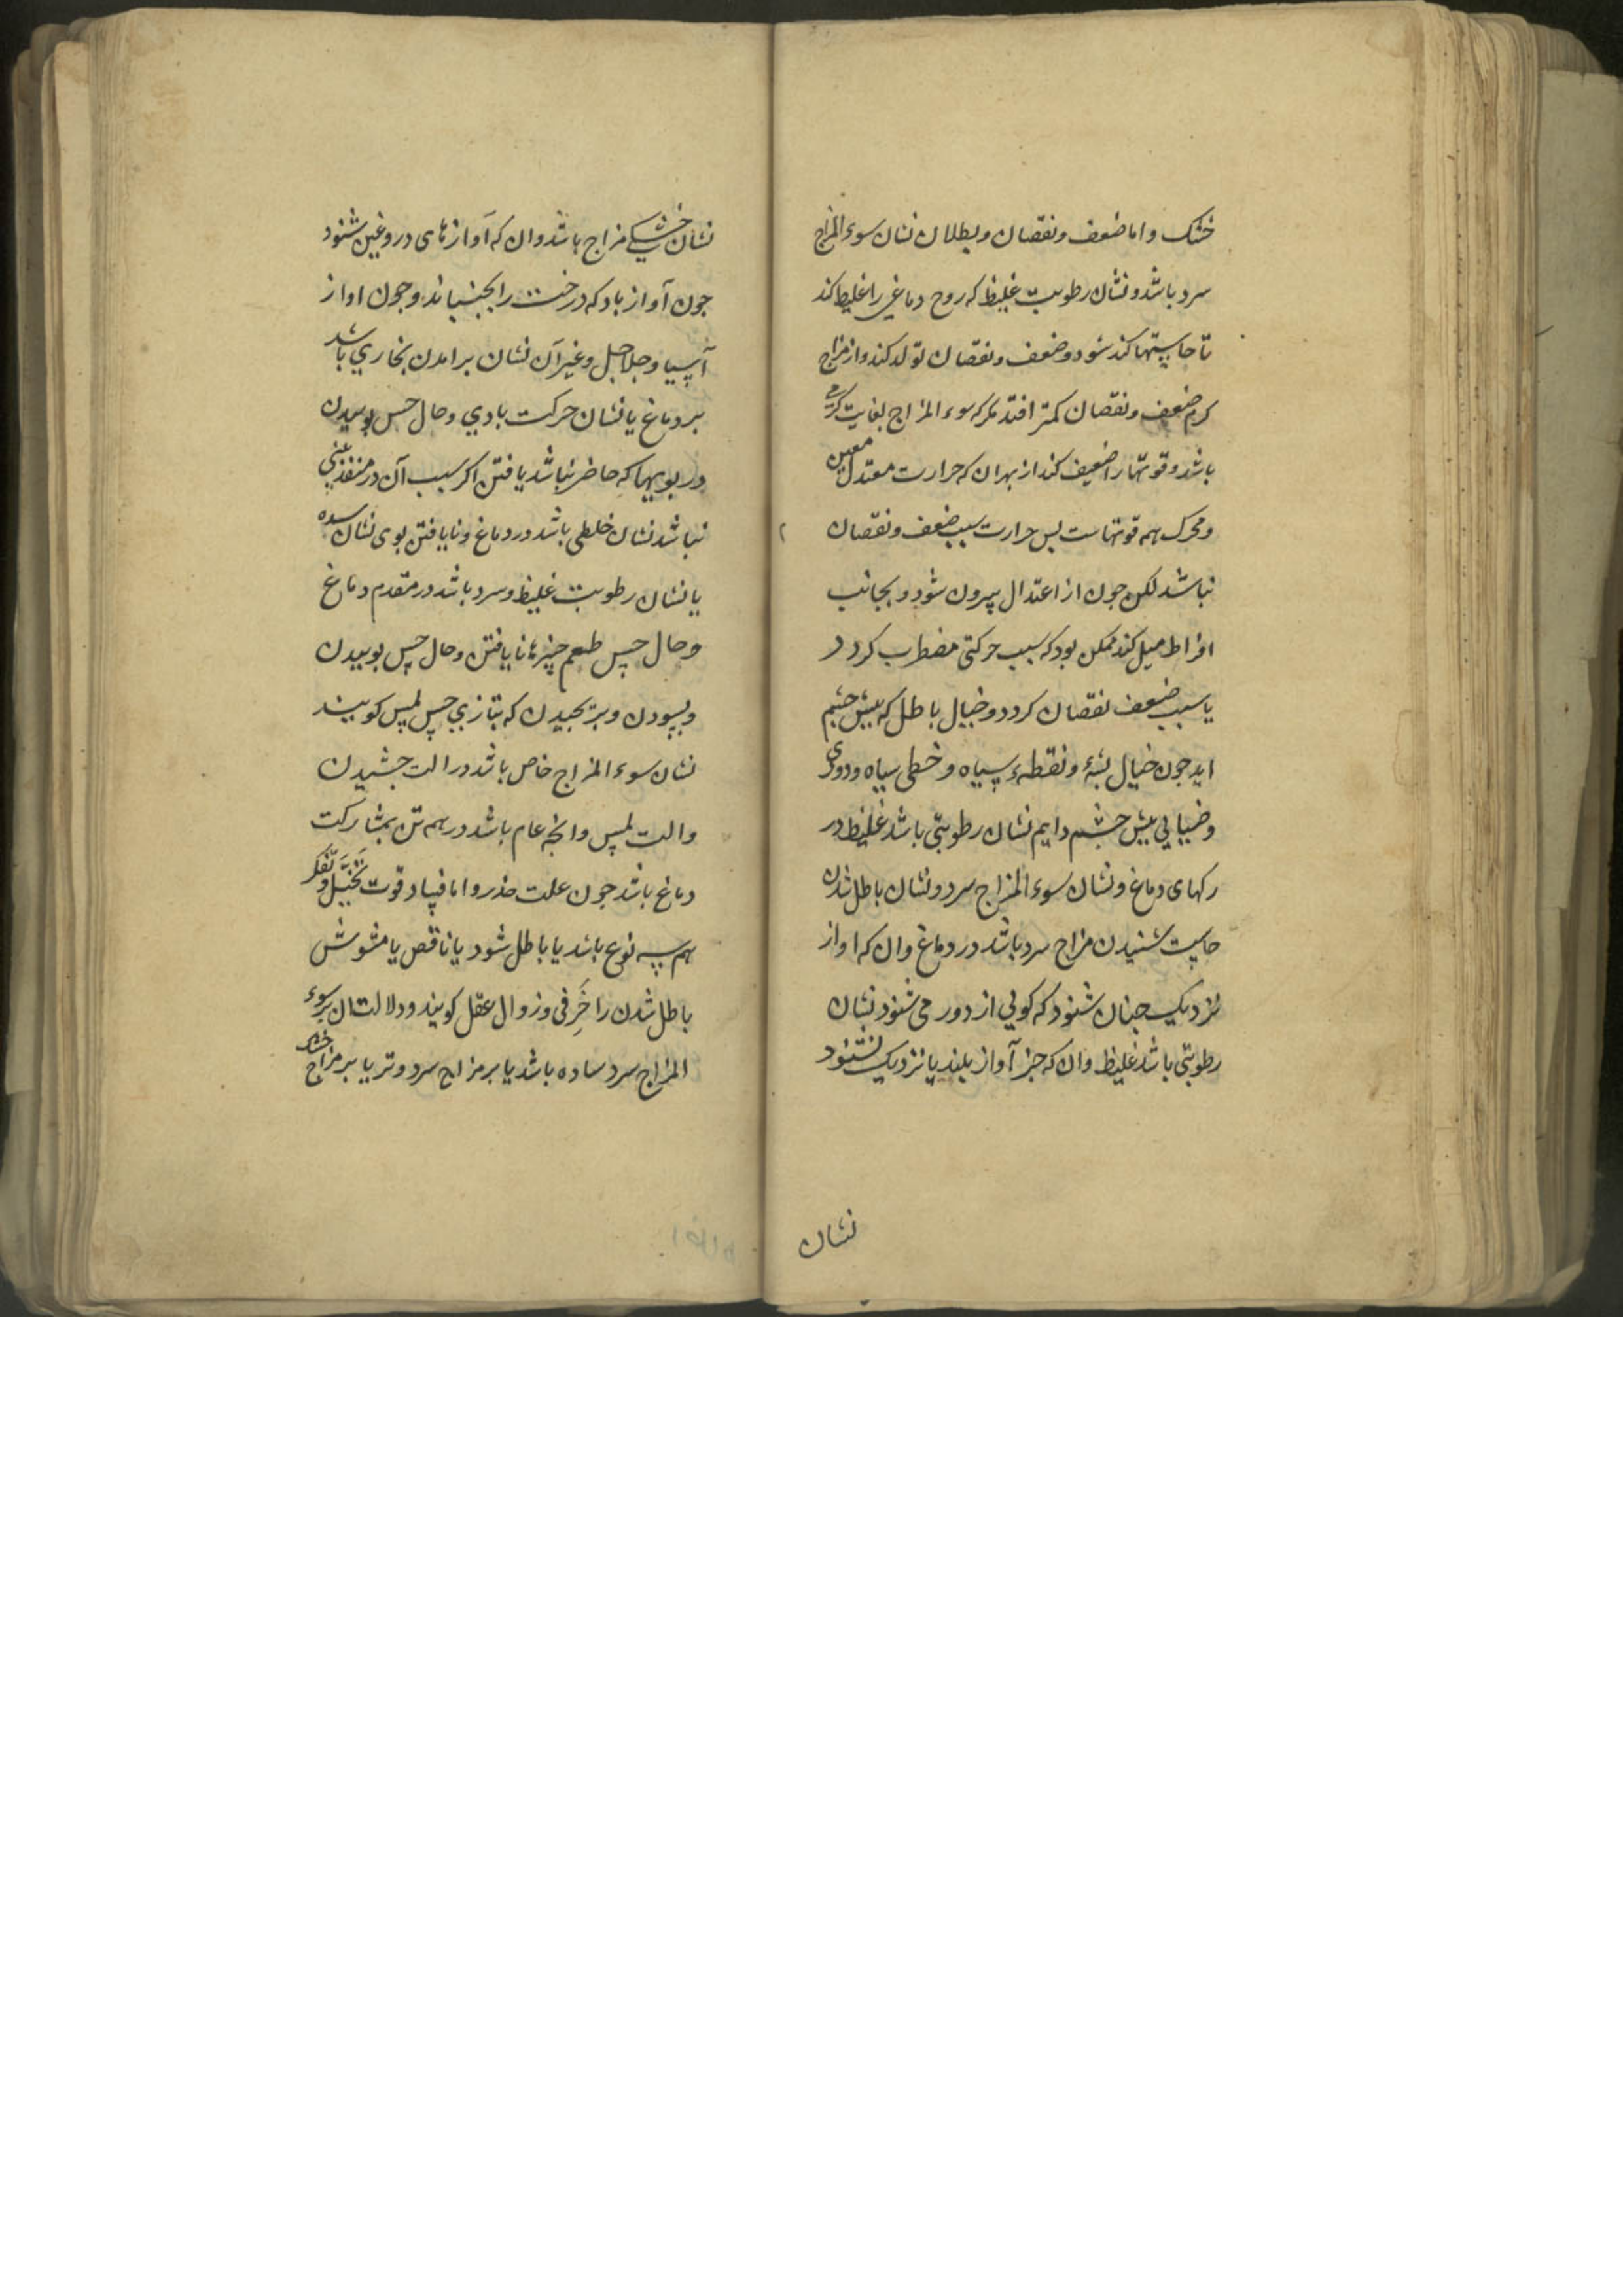 خشک و اما ضعف و نقصان و بطلان نشان سوء المزاج
سرد باشد و نشان رطوبت غلیظ که روح دماغی را غلیظ کند
تا حاستها کند شود و ضعف و نقصان تولد کند و از مزاج
کرم ضعف و نقصان کمتر افتد مکر که سوء المزاج بغایت کرمی
باشد و قوتها را ضعیف کند از بهر ان که حرارت معتدل معین
و محرک همه قوتهاست بس حرارت سبب ضعف و نقصان
نباشد لکن جون از اعتدال بیرون شود و بجانب
افراط میل کند ممکن بود که سبب حرکتی مضطرب کردد
یا سبب ضعف نقصان کردد و خیال باطل که بیش جشم
اید جون خیال بشهٔ و نقطهٔ سیاه و خطی سیاه و دودی
و ضیایی بیش جشم دایم نشان رطوبتی باشد غلیظ در
رکهای دماغ و نشان سوء المزاج سرد و نشان باطل شدن
حاست شنیدن مزاج سرد باشد در دماغ و ان که اواز
نزدیک جنان شنود که کویی از دور می شنود نشان
رطوبتی باشد غلیظ و ان که جز آواز بلند یا نزدیک نشنود
نشان
نشان خشکی مزاج باشد و ان که آوازهای دروغین شنود
جون آواز باد که درخت را بجنباند و جون اواز
آسیا و جلاجل و غیر آن نشان برامدن بخاری باشد
بر دماغ یا نشان حرکت بادی و حال حس بوییدن
در بویهاء که حاضر نباشد یافتن اکر سبب آن در منفذ بینی
نباشد نشان خلطی باشد در دماغ و نایافتن بوی نشان سده
یا نشان رطوبت غلیظ و سرد باشد در مقدم دماغ
و حال حس طعم جیزها نایافتن و حال حس بوییدن
و بسودن و که بتازی حس لمس کویند
نشان سوء المزاج خاص باشد در الت جشیدن
و الت لمس و انچه عام باشد در همه تن بمشارکت
دماغ باشد جون علت خدر و اما فساد قوت تخیل و تفکر
هم سه نوع باشد یا باطل شود یا ناقص یا مشوش
باطل شدن را خَرِفی و زوال عقل کویند و دلالتشان بر سوء
المزاج سرد ساده باشد یا بر مزاج سرد و تر یا بر مزاج خشک